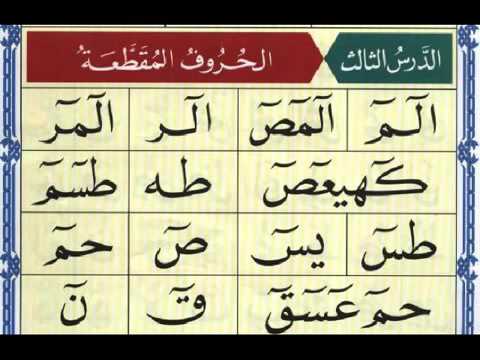 الدَّرسُ الثالث الحُرُوفُ المُقَطَّعَةُ
الٓمٓ الٓمٓصٓ الٓر الٓمٓر
كٓهيعٓصٓ طه طسٓمٓ
طسٓ يسٓ صٓ حمٓ
حمٓ عٓسٓقٓ قٓ نٓ